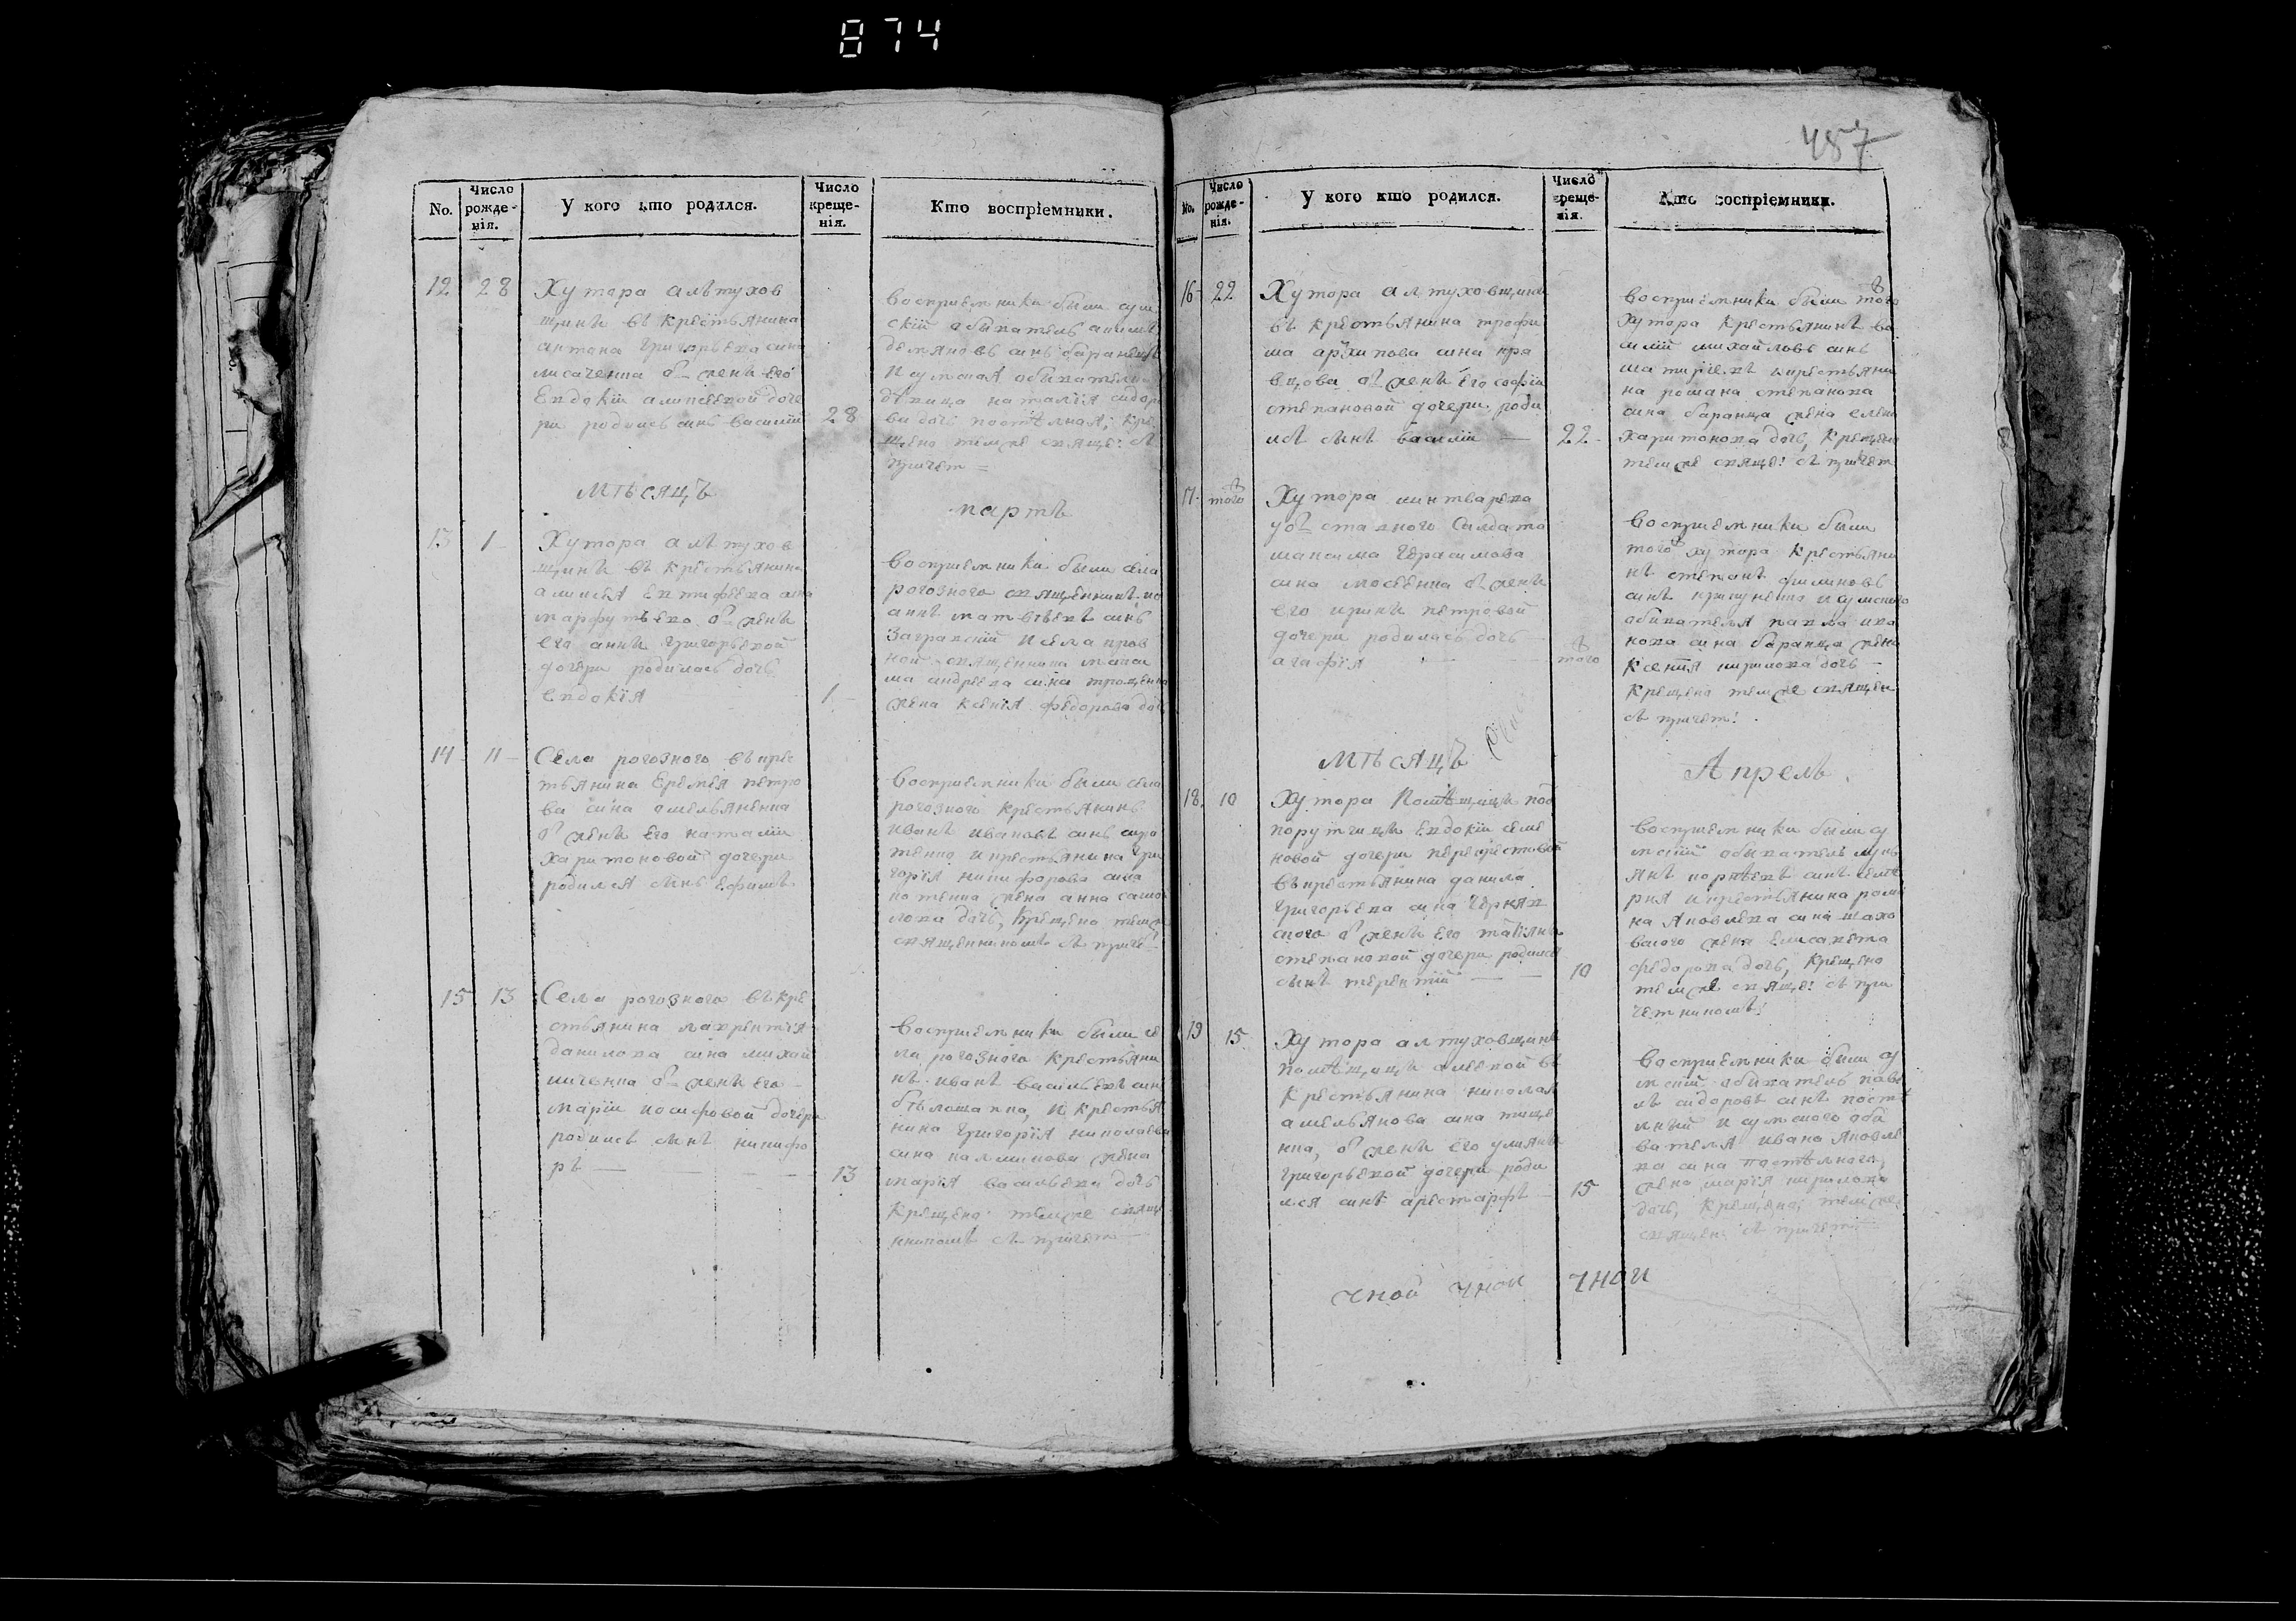 874
487
No.
Число рожде-нія.
У кого кто родился.
Число креще-нія.
Кто воспріемники.
12
28
Хутора алтухов
щинѣ въ крестьянина
антона григорьева сина
лисаченка от жени его
Евдокіи алиѯеевой доче
ри родилсь синъ василій
28
воспріемники были сум
скій обыватель
демяновъ синъ баранецъ
и сумская обывателя
дѣвица наталія сидоро
ва дочь постѣлная, кре
щено тѣмже свяще: съ
причет =
МѢСЯЦЪ
мартъ
13
1
Хутора алтухов
щинѣ въ крестьянина
алиѯея евтифеева сина
марфутьева от жени
его анни григорьевой
дочери родилась дочь
евдокія
1
воспріемники были села
рогозного священникъ іо
аннъ матвѣевъ синъ
заграфскій и села кров
ной священника макси
ма андреева сина трощенка
жена ксенія федорова дочь
14
11
Села рогозного въ крес
тьянина Еремея петро
ва сина омельяненка
от жени его наталіи
харитоновой дочери
родился синъ ефимъ
воспріемники были села
рогозного крестьянинъ
иванъ ивановъ синъ
тенко и крестьянина гри
горія никифорова сина
жена анна само
лова дочь, крещено темже
священникомъ съ приче
15
13
Села рогозного въ кре
стьянина лаврентія
данилова сина михай
личенка от жени его
маріи иосифовой дочери
родилсь синъ никифо
ръ
13
воспріемники были се
ла рогозного крестьяни
нъ иванъ васильевъ синъ
бѣлошапка, и крестья
нина григорія николаева
сина калашнова жена
марія васильева дочь
крещено темже свяще
нникомъ съ причет
No.
Число рожде-нія.
У кого кто родился.
Число креще-нія.
Кто воспріемники.
16
22
Хутора алтуховщини
въ крестьянина трофи
ма архипова сина кра
вцова от жени его софіи
степановой дочери роди
лсь синъ василій
22
воспріемники были того
хутора крестьянинъ ва
силій михайловъ синъ
и крестьяни
на романа степанова
сина баранца жена елена
харитонова дочь, крещено
темже свяще: съ причет
17
того
Хутора линтварева
у отставного салдата
максима герасимова
сина мосеенка от жени
его ирини петровой
дочери родилась дочь
агафія
того
воспріемники были
того хутора крестьяни
нъ степанъ филиповъ
синъ и сумского
обивателя павла ива
нова сина баранца жена
ксенія кирилова дочь
крещено темже священ
съ причет:
МѢСЯЦЪ
Апрель
18
10
Хутора помѣщици под
поручици Евдокіи семе
новой дочери перекрестовой
въ крестьянина данила
григорьева сина черняв
ского от жени его татіяни
степановой дочери родился
синъ терентій
10
воспріемники были су
мскій обиватель лукь
янъ корнѣевъ синъ
и крестьянина рома
на яковлева сина шахо
вского жена елисавета
федорова дочь, крещено
темже свяще: съ при
четникомъ!
19
15
Хутора алтуховщини
помѣщици въ
крестьянина николая
амельянова сина тище
нка, от жени его уліяни
григорьевой дочери роди
лся синъ аристархъ
15
воспріемники были су
мскій обиватель паве
лъ сидоровъ синъ постѣ
лній и сумского оби
вателя ивана яковле
ва сина постѣлного,
жена марія кирилова
дочь, крещено, темже
священ: съ причет
чной чной чной